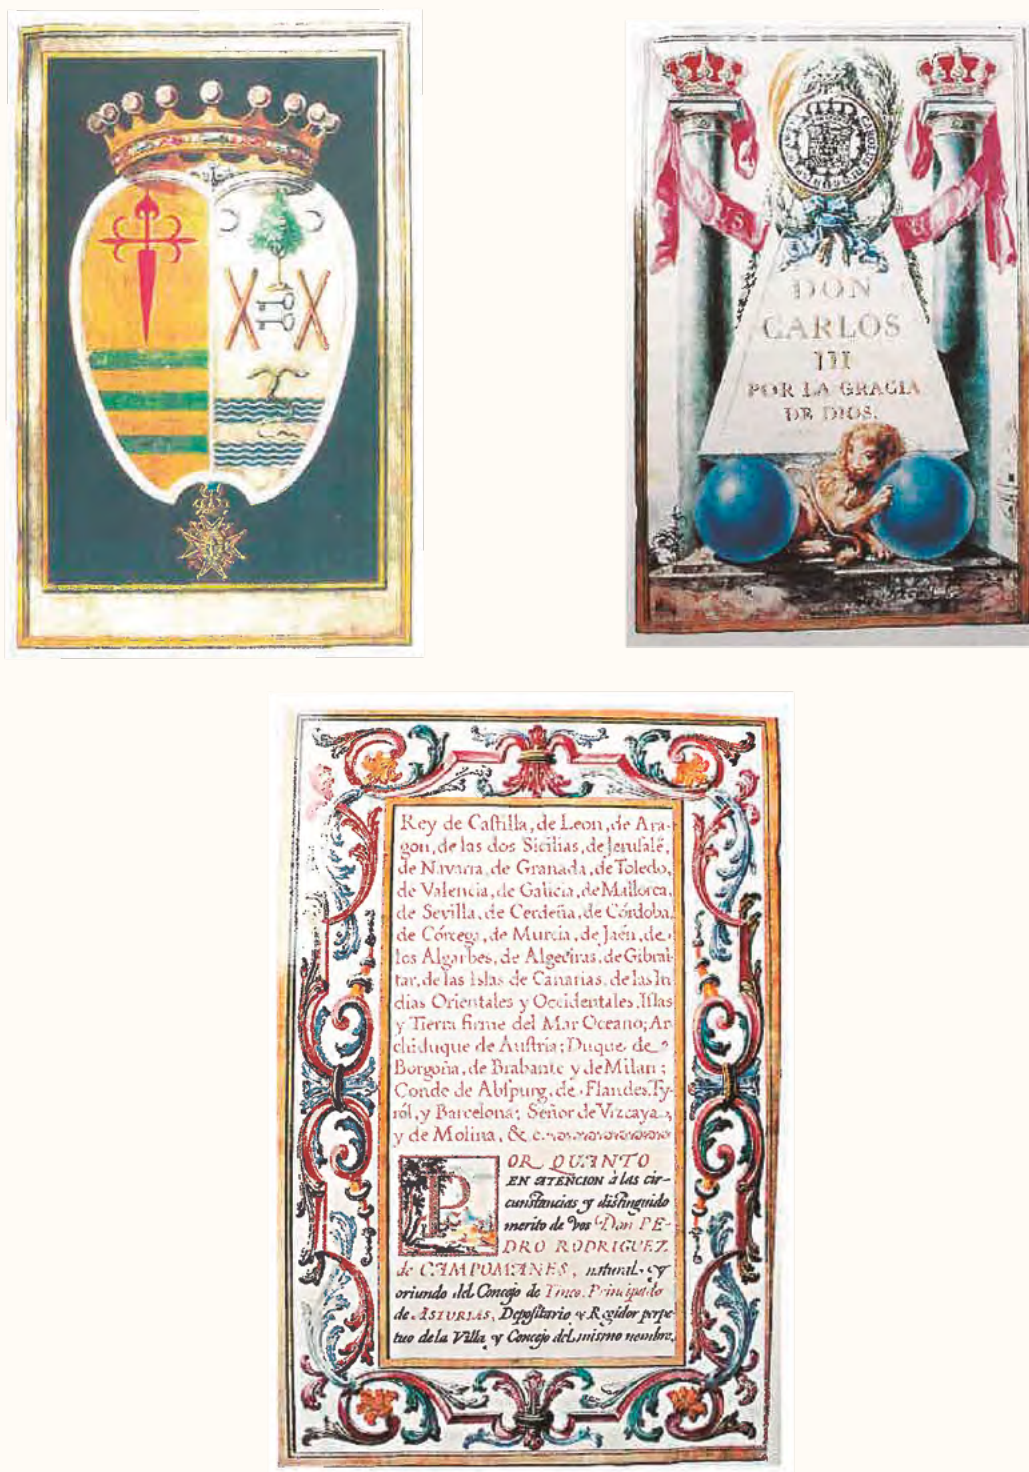 DON
CARLOS
III
POR LA GRACIA
DE DIOS.
Rey de Castilla, de Leon, de Ara-
gon, de las dos Sicilias, de Jerusalẽ,
de Navarra, de Granada, de Toledo,
de Valencia, de Galicia, de Mallorca,
de Sevilla, de Cerdeña, de Córdoba,
de Córcega, de Murcia, de Jaén, de
los Algarbes, de Algeciras, de Gibral-
tar, de las Islas de Canarias, de las In
dias Orientales y Occidentales, Islas
y Tierra firme del Mar Oceano; Ar
chiduque de Austria; Duque de
Borgoña, de Brabante y de Milan;
Conde de Abspurg, de Flandes, Ty-
ról, y Barcelona; Señor de Vizcaya,
y de Molina, & c.
POR QUANTO
EN ATENCION à las cir-
cunstancias y distinguido
merito de vos Don PE-
DRO RODRIGUEZ
de CAMPOMANES, natural y
oriundo del Concejo de Tineo, Principado
de ASTURIAS, Depositario y Regidor perpe
tuo de la Villa y Concejo del mismo nombre,